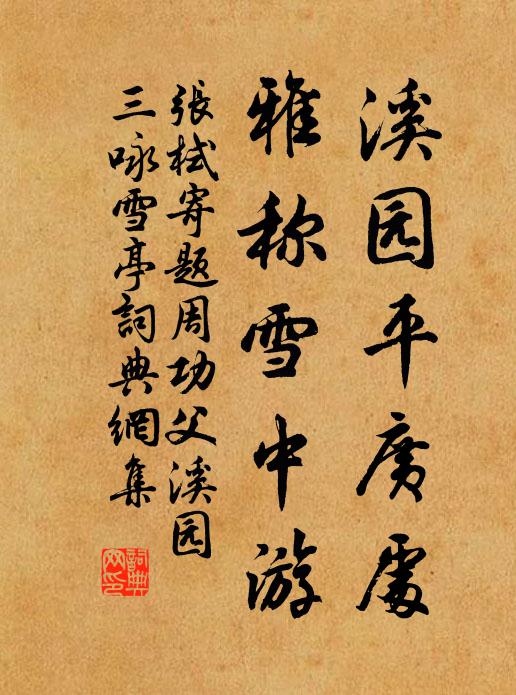 溪园平广處
雅称雪中游
張栻寄題周功父溪园
三咏雪亭詞典網集